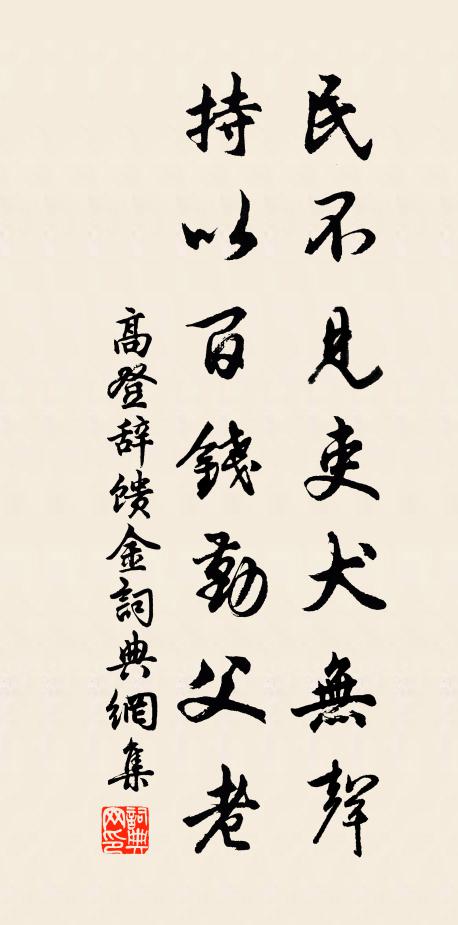 民不見吏犬無聲
持以百錢勤父老
高登辞馈金詞典網集
詞典
网印